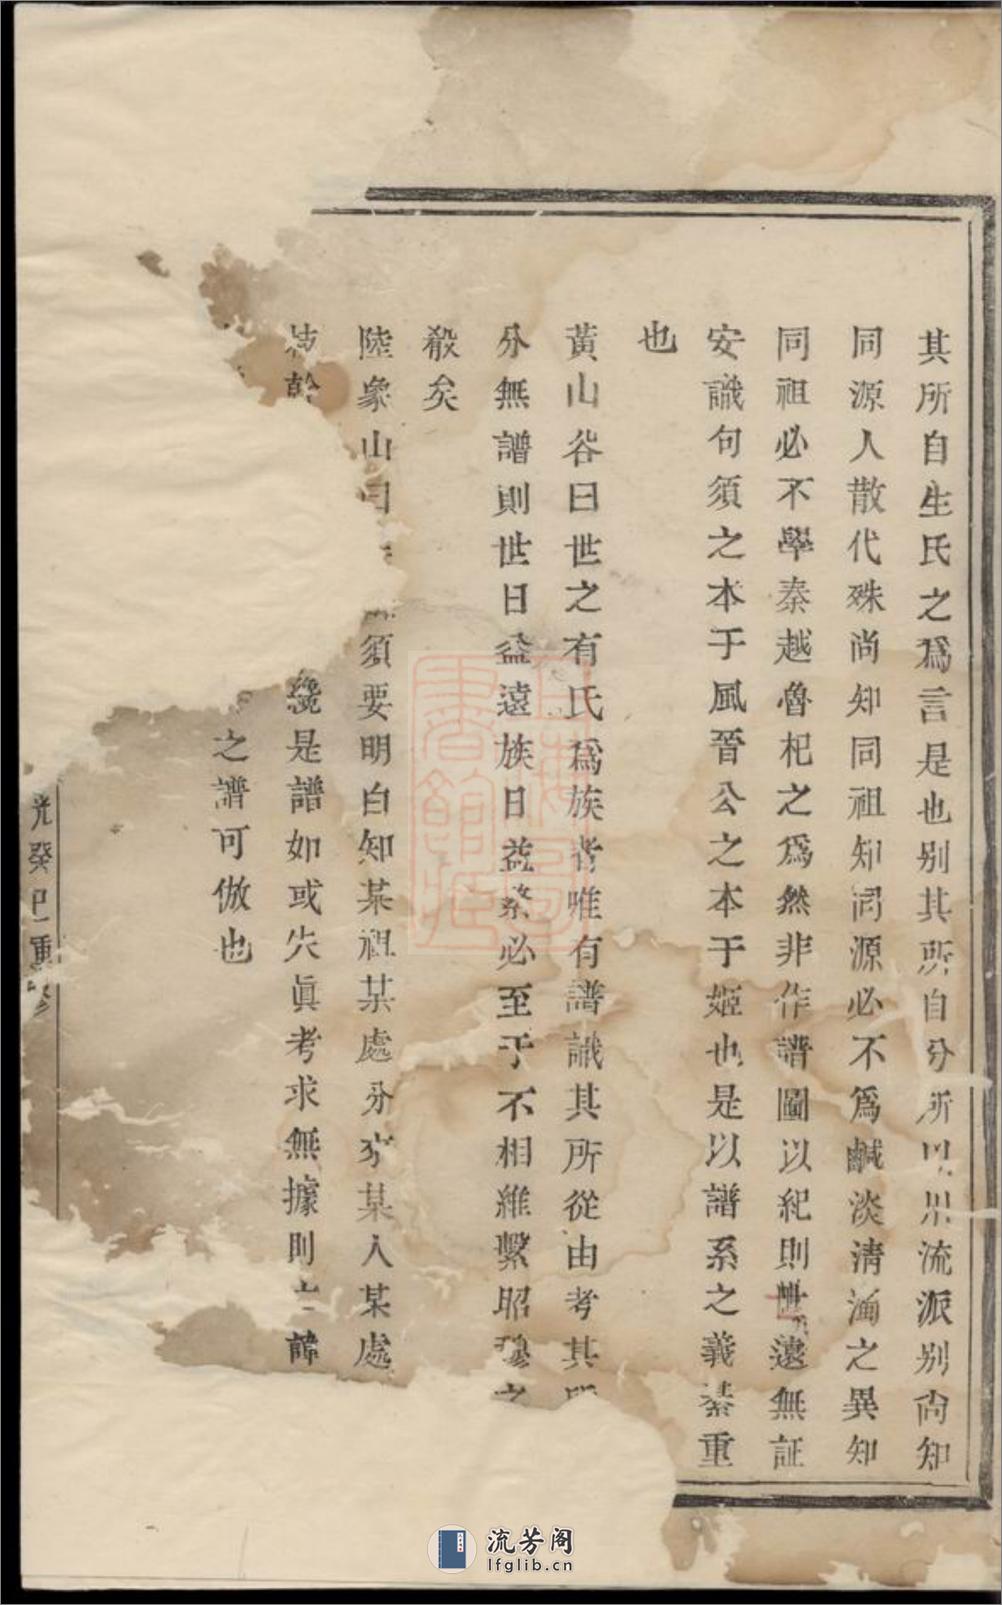 其所自生氏之爲言是也别其所自分所以川流派别尙知
同源人散代殊尚知同祖知同源必不爲鹹淡清涵之異知
同祖必不學秦越魯杞之爲然非作譜圖以紀則世遠無証
安識句須之本于風晉公之本于姬也是以譜系之義綦重
也
黃山谷曰世之有氏爲族者唯有譜識其所從由考其所
分無譜則世日益遠族日益繁必至于不相維繫昭穆之
殽矣
陸象山曰須要明白知某祖某處分來某人某處
枝幹纔是譜如或失眞考求無據則諱
之譜可倣也
光癸巳重修
上海圖書館藏
流芳阁
lfglib.cn